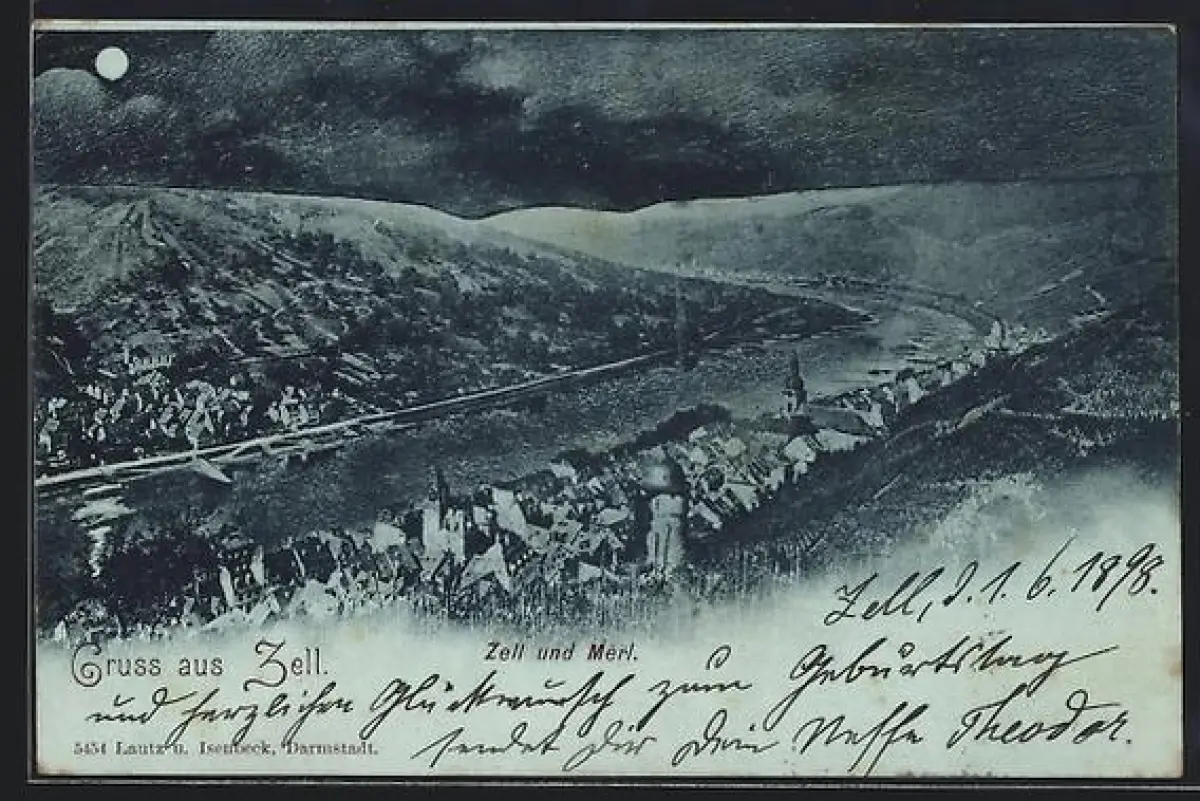 Zell, d. 1. 6. 1898.
Gruss aus Zell.
Zell und Merl.
und herzlichen Glückwunsch zum Geburtstag
sendet Dir Dein Neffe Theodor.
5454 Lautz u. Isenbeck, Darmstadt.